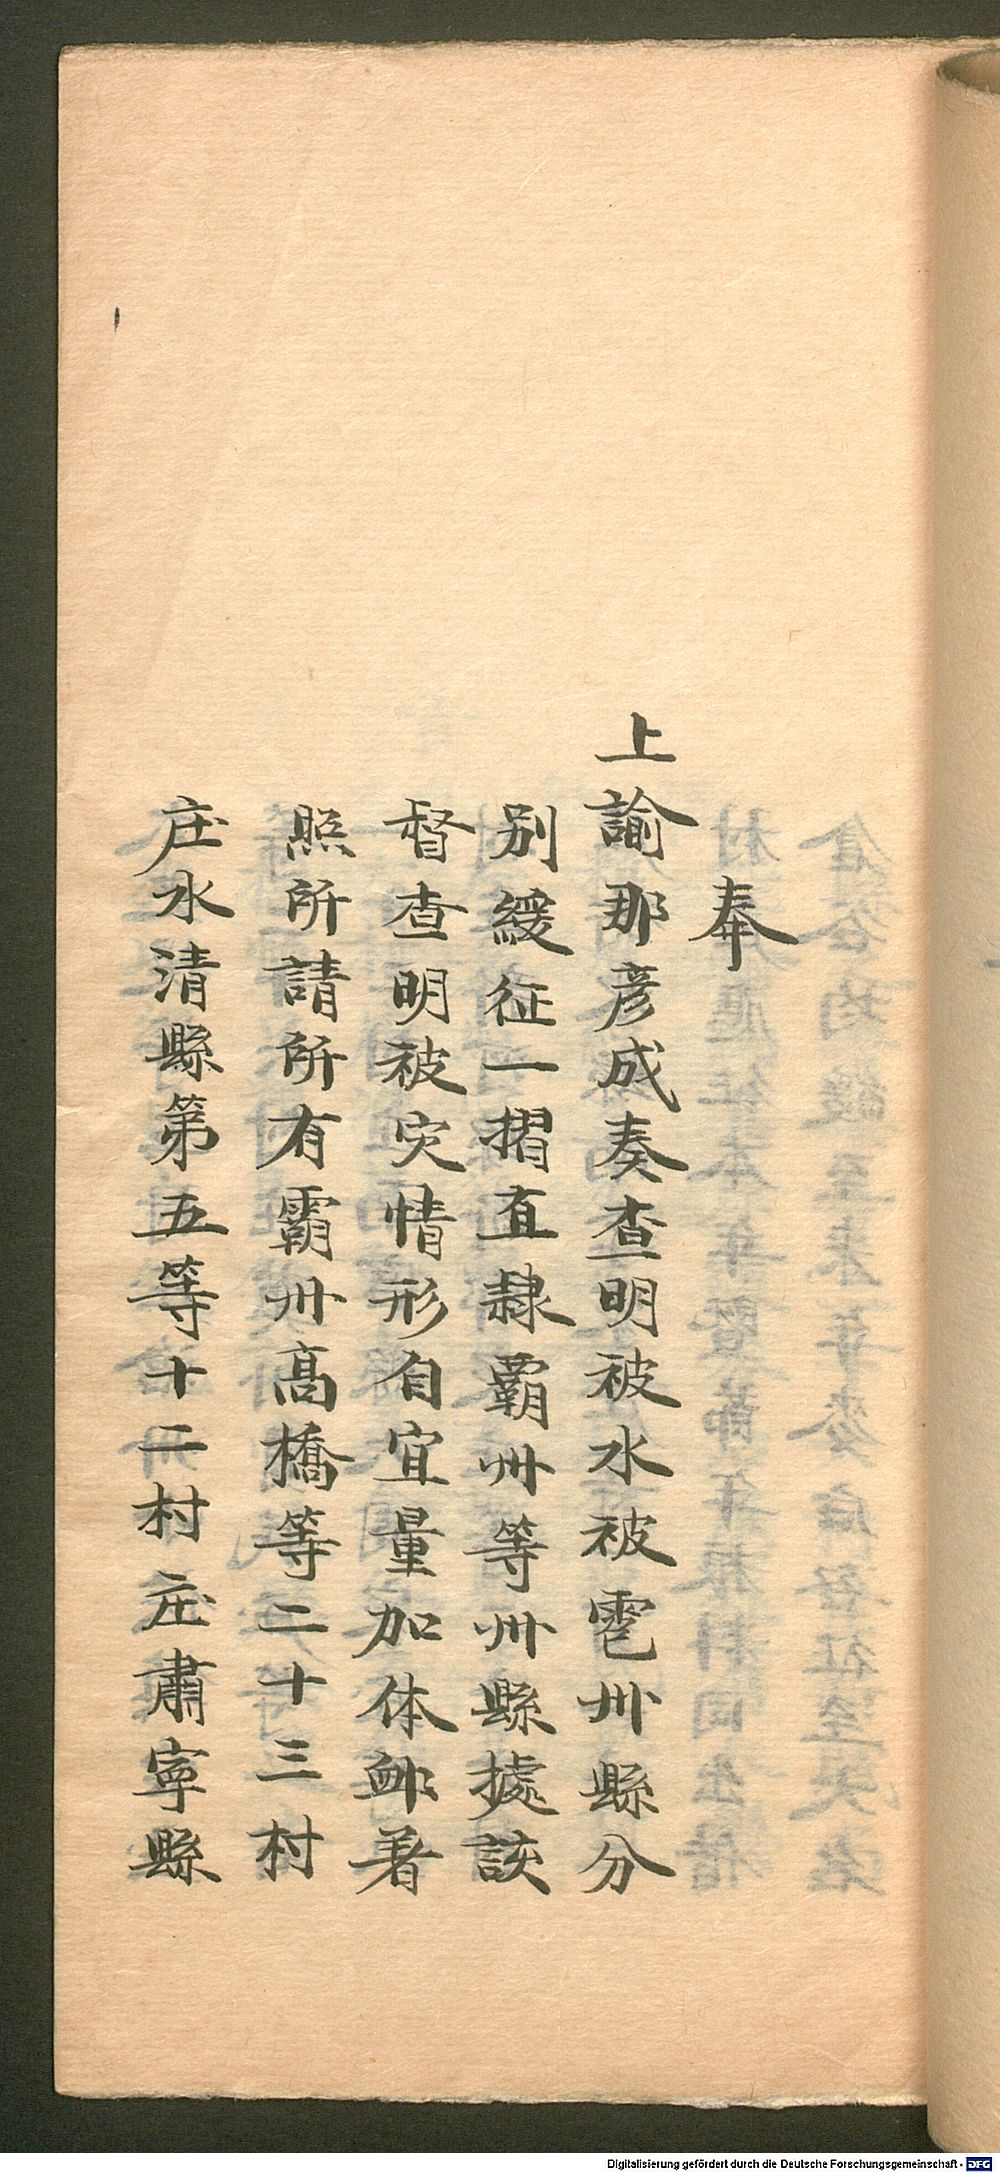 奉
上諭那彦成奏查明被水被雹州縣分
别緩征一摺直隷霸州等州縣據該
督查明被灾情形自宜量加体卹著
照所請所有霸州髙橋等二十三村
庄水清縣第五等十二村庄肅寧縣
Digitalisierung gefördert durch die Deutsche Forschungsgemeinschaft - DFG